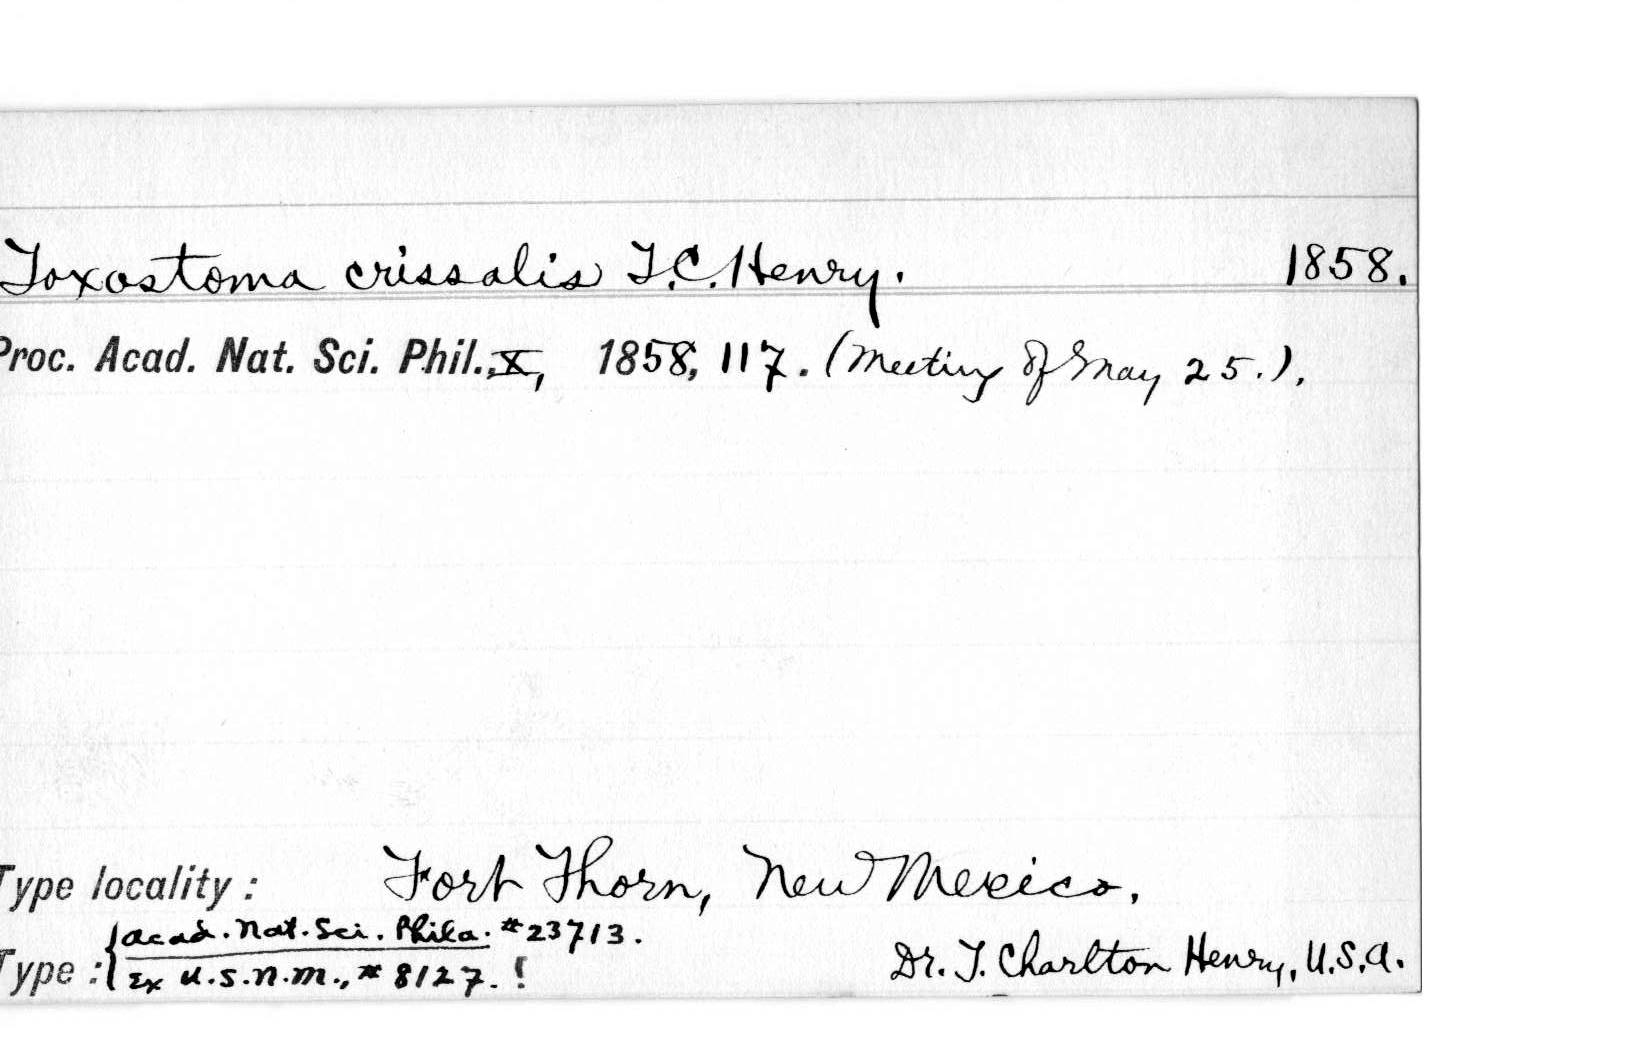 Toxostoma crissalis T.C. Henry. 1858.
Proc. Acad. Nat. Sci. Phil., X, 1858, 117. (Meeting of May 25.).
Type locality: Fort Thorn, New Mexico.
Acad. Nat. Sci. Phila. #23713.
Type: Ex U.S.N.M., #8127. ! Dr. T. Charlton Henry, U.S.A.